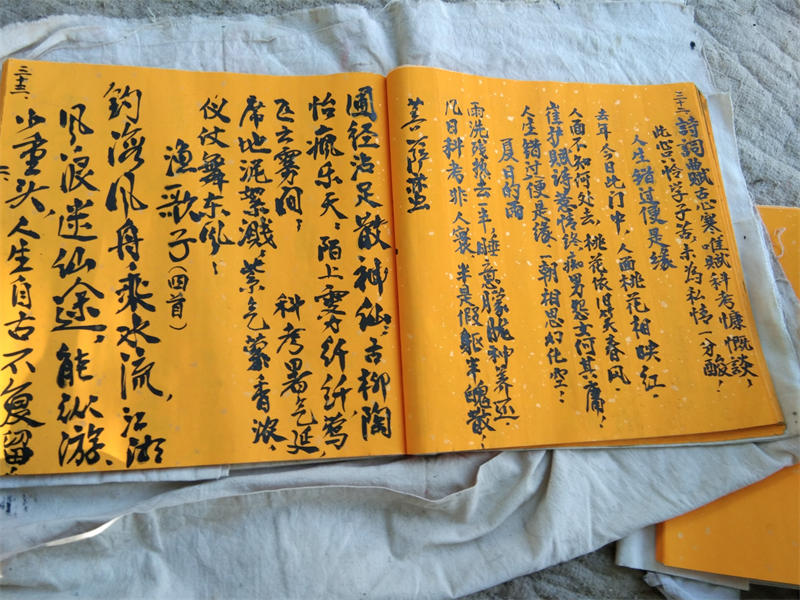 三十二
詩詞曲賦志寒唯賦科考慷慨談，
此答怜学子苦，未为私情一分酸！
人生错过便是缘
去年今日此门中，人面桃花相映红，
人面不知何处去，桃花依旧笑春风。
崔护赋诗为情终，痴男怨女何其庸，
人生错过便是缘，一朝相思幻化空！
夏日的雨
雨洗残热去午睡，意朦胧神养足，
几日科考非人寰，半是假躯半魄散！
菩萨蛮
圃径沾足散神仙，古柳陶
怡疯乐天，陌上雯纤纤，鸳
飞云雾间，科考暑气延，
席地泥絮溅，紫气蒙香浓，
仪仗舞东风！
渔歌子（四首）
钓海风舟乘水流，江湖
风浪迷仙途，能纵游，
少重头，人生自古不复留！
三十三